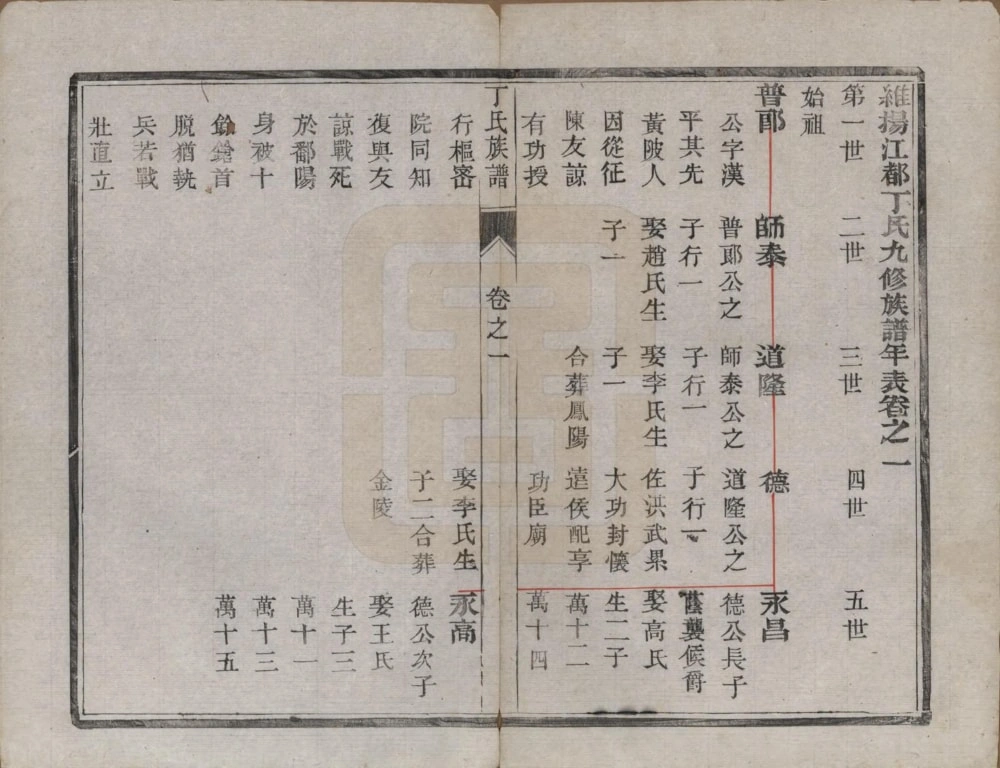 維揚江都丁氏九修族譜年表卷之一
第一世
二世
三世
四世
五世
始祖
普郎
公字漢
平其先
黃陂人
因從征
陳友諒
有功授
行樞密
院同知
復與友
諒戰死
於鄱陽
身被十
餘鎗首
脫猶執
兵若戰
壯直立
師泰
普郎公之
子行一
娶趙氏生
子一
道隆
師泰公之
子行一
娶李氏生
子一
合葬鳳陽
德
道隆公之
子行一
佐洪武果
大功封懷
遠侯配享
功臣廟
娶李氏生
子二合葬
金陵
永昌
德公長子
蔭襲侯爵
娶高氏
生二子
萬十二
萬十四
永高
德公次子
娶王氏
生子三
萬十一
萬十三
萬十五
丁氏族譜
卷之一